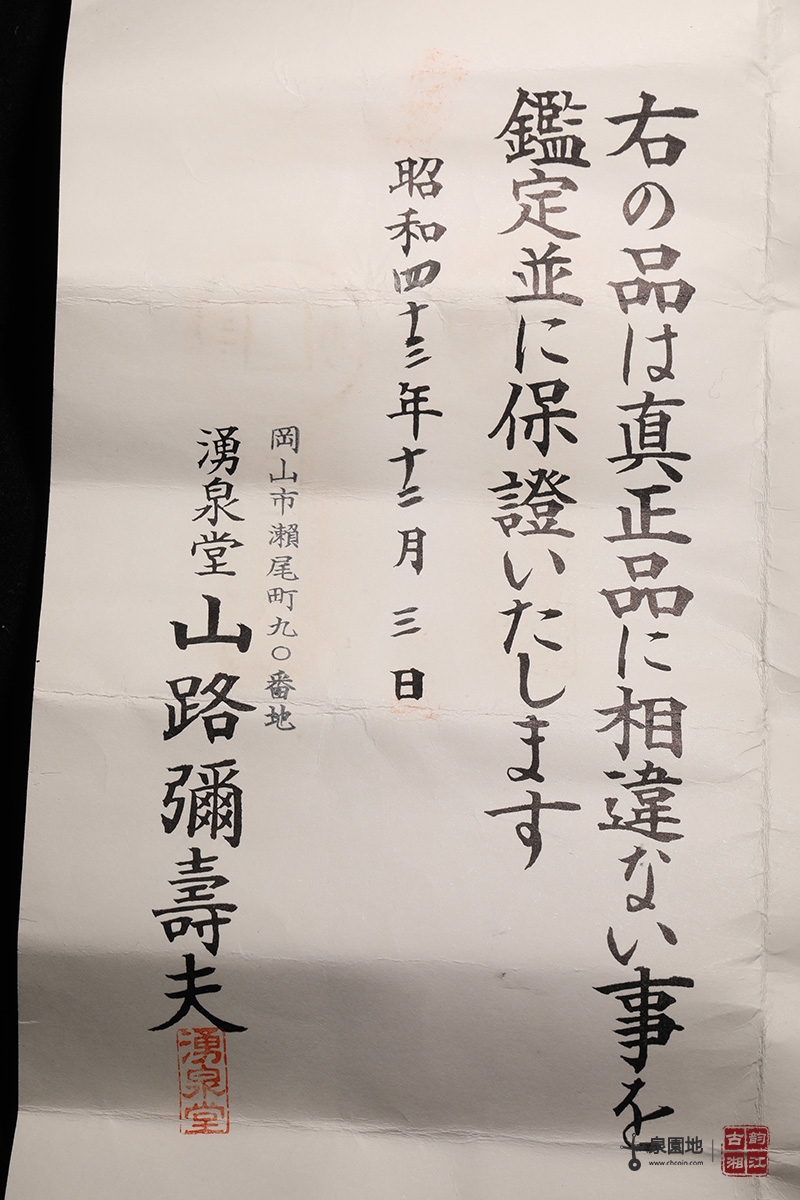 右の品は真正品に相違ない事を
鑑定並に保證いたします
昭和四十三年十二月三日
岡山市瀬尾町九〇番地
湧泉堂 山路彌壽夫
湧泉堂
泉園地
www.chcoin.com
韵江
古湘